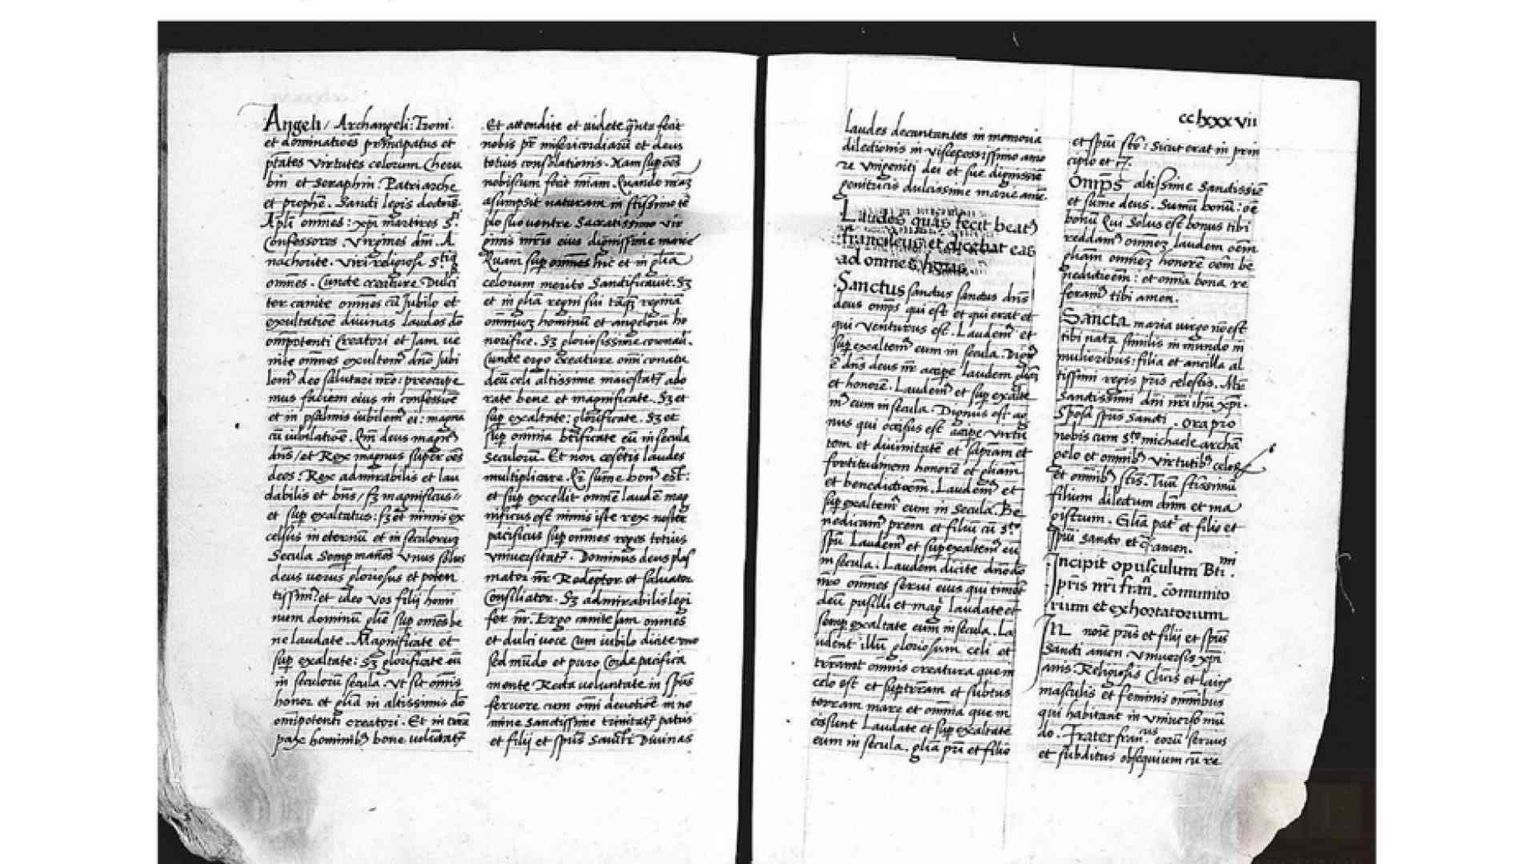 Angeli / Archangeli: Troni.
et dominatiões prĩcipatus et
ptates virtutes celorum Cheru
bin et Seraphin: Patriarche
et prophẽ. Sancti legis doctores.
Apl̃i omnes: xp̃i martires Sti
Confessores. Virgines dñi. A
nachorite. Viri religiosi Stiq̃
omnes. Cuncte creature Dulci
ter canite omnes cũ Jubilo et
exultatioẽ diuinas laudes dõ
omp̃otenti Creatori et Jam ue
nite omnes exultemꝰ dño Jubi
lemꝰ deo salutari nr̃o: preocupe
mus faciem eius in confessiõe
et in psalmis iubilemꝰ ei: magna
cũ iubilatiõe. Qm̃ deus magnꝰ
dñs / et Rex magnus super oẽs
deos: Rex admirabilis et lau
dabilis et bñs / sꝫ magnificus
et sup̃ exaltatus: sꝫ et nimis ex
celsus in eternũ et in seculorum
Secula Semp̃ manẽs Vnus solus
deus uerus gloriosus et poten
tissimꝰ et ideo vos filij homi
num dominũ
ne laudate. Magnificate et
sup̃ exaltate: Sꝫ glorificate eũ
in seculorũ secula. Vt sit omnis
honor et glĩa in altissimis dõ
omĩpotenti creatori. Et in terra
pax hominibꝰ bone voluntatꝭ
Et attendite et uidete q̃nta fecit
nobis pr̃ misericordiarũ et deus
totius consolationis. Nam sup̃ oẽs
nobiscum fecit mĩam. Quando nr̃aꝫ
asumpsit naturam in stissimo tẽ
plo suo ventre Sacratissimo vir
ginis mr̃is eius dignissime marie
Quam sup̃ omnes hic et in glĩa
celorum merito Santificauit. Sꝫ
et in glĩa regni sui tãqꝫ reginã
omniuꝫ hominũ et angelorũ ho
norifice. Sꝫ gloriosissime coronauit.
Cuncte ergo creature omni conatu
deũ celi altissime maiestatꝭ ado
rate bene et magnificate. Sꝫ et
sup̃ exaltate: glorificate. Sꝫ et
sup̃ omnia btificate eũ in secula
Seculorũ. Et non cesetis laudes
multiplicare. Qr̃ sume bonꝰ est:
et sup̃ excellit omnẽ laudẽ mag
nificus est nimis iste rex noster
pacificus sup̃ omnes reges totius
vniuersitatꝭ. Dominus deus plas
mator nr̃ Redẽptor et saluator
Consiliator. Sꝫ admirabilis legi
fer nr̃. Ergo canite Jam omnes
et dulci uoce Cum iubilo dicite uno
sed mũdo et puro Corde pacifica
mente Recta voluntate in sp̃us
feruore cum omni deuotiõe in no
mine Sanctissime trinitatꝭ patris
et filij et sp̃us Sancti Diuinas
cclxxxvii
laudes decantantes in memoria
dilectionis in viscerosissimo amo
re vnigeniti dei et sue dignissiẽ
genitricis dulcissime marie amẽ.
Laudes quas fecit beatꝰ
franciscus et dicebat eas
ad omnes horas
Sanctus sanctus sanctus dñs
deus omp̃s qui est et qui erat et
qui venturus est. Laudemꝰ et
sup exaltemꝰ eum in secula. Dignꝰ
ẽ dñs deus nr̃ accipe laudem glĩaꝫ
et honorẽ. Laudemꝰ et sup exalte
mꝰ eum in secula. Dignus est ag
nus qui occisus est accipe virtu
tem et diuinitatẽ et sapiam et
fortitudinem honorẽ et gliam
et benedictioẽm. Laudemꝰ et
sup exaltemꝰ eum in Secula. Be
nedicamꝰ prẽm et filiũ cũ sto
sp̃u Laudemꝰ et sup exaltemꝰ eũ
in secula. Laudem dicite dño dõ
nr̃o omnes serui eius qui timetꝭ
deũ pusilli et magi laudate et
semp̃ exaltate eum in secula. La
udent illũ gloriosum celi et
terra et omnis creatura que in
celo est et sup terram et subtus
terram mare et omnia que in
eis sunt Laudate et sup exaltate
eum in secula. glĩa pr̃i et filio
et sp̃ui sto: Sicut erat in prin
cipio et
Omp̃s altissime Sanctissiẽ
et sume deus. Sumũ bonũ: oẽ
bonũ Qui Solus est bonus tibi
reddamꝰ omneꝫ laudem oẽm
gliam omneꝫ honorẽ oẽm be
nedictioẽm: et omnia bona re
feramꝰ tibi amen.
Sancta maria uirgo nõ est
tibi nata similis in mundo in
mulieribus: filia et ancilla al
tissimi regis pr̃is celestis. Mr̃
Sanctissimi dñi nr̃i ihũ xp̃i.
Sposa sp̃us Sancti. ora pro
nobis cum Sto michaele archã
gelo et omnibꝰ virtutibꝰ celoꝝ
et omnibꝰ sctis. Tuũ stissimũ
filium dilectum dñm et ma
gistrum. Glĩa patri et filio et
sp̃ui sancto et amen.
Incipit opusculum Bti.
pr̃is nr̃i fran. cõmunito
rium et exhortatorium
IN noĩe pr̃is et filij et sp̃us
Sancti amen. Vniuersis xp̃i
anis. Religiosis Clericis et laicis
masculis et feminis omnibus
qui habitant in vniuerso mũ
do. Frater francus eorũ seruus
et subditus obsequium cũ re